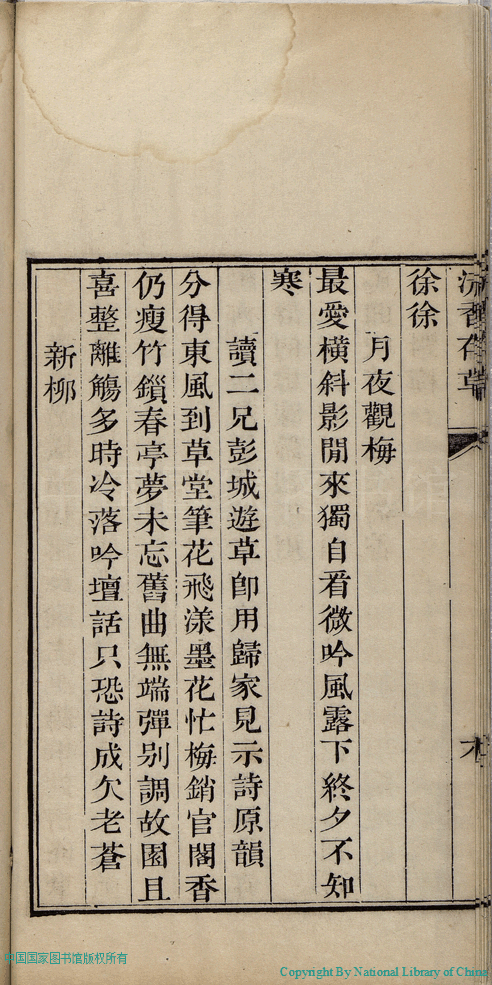 香存草
徐徐
月夜觀梅
最愛橫斜影閒來獨自看微吟風露下終夕不知
寒
讀二兄彭城遊草卽用歸家見示詩原韻
分得東風到草堂筆花飛漾墨花忙梅銷官閣香
仍瘦竹鎖春亭夢未忘舊曲無端彈別調故園且
喜整離觴多時冷落吟壇話只恐詩成欠老蒼
新柳
中国国家图书馆版权所有
Copyright By National Library of China